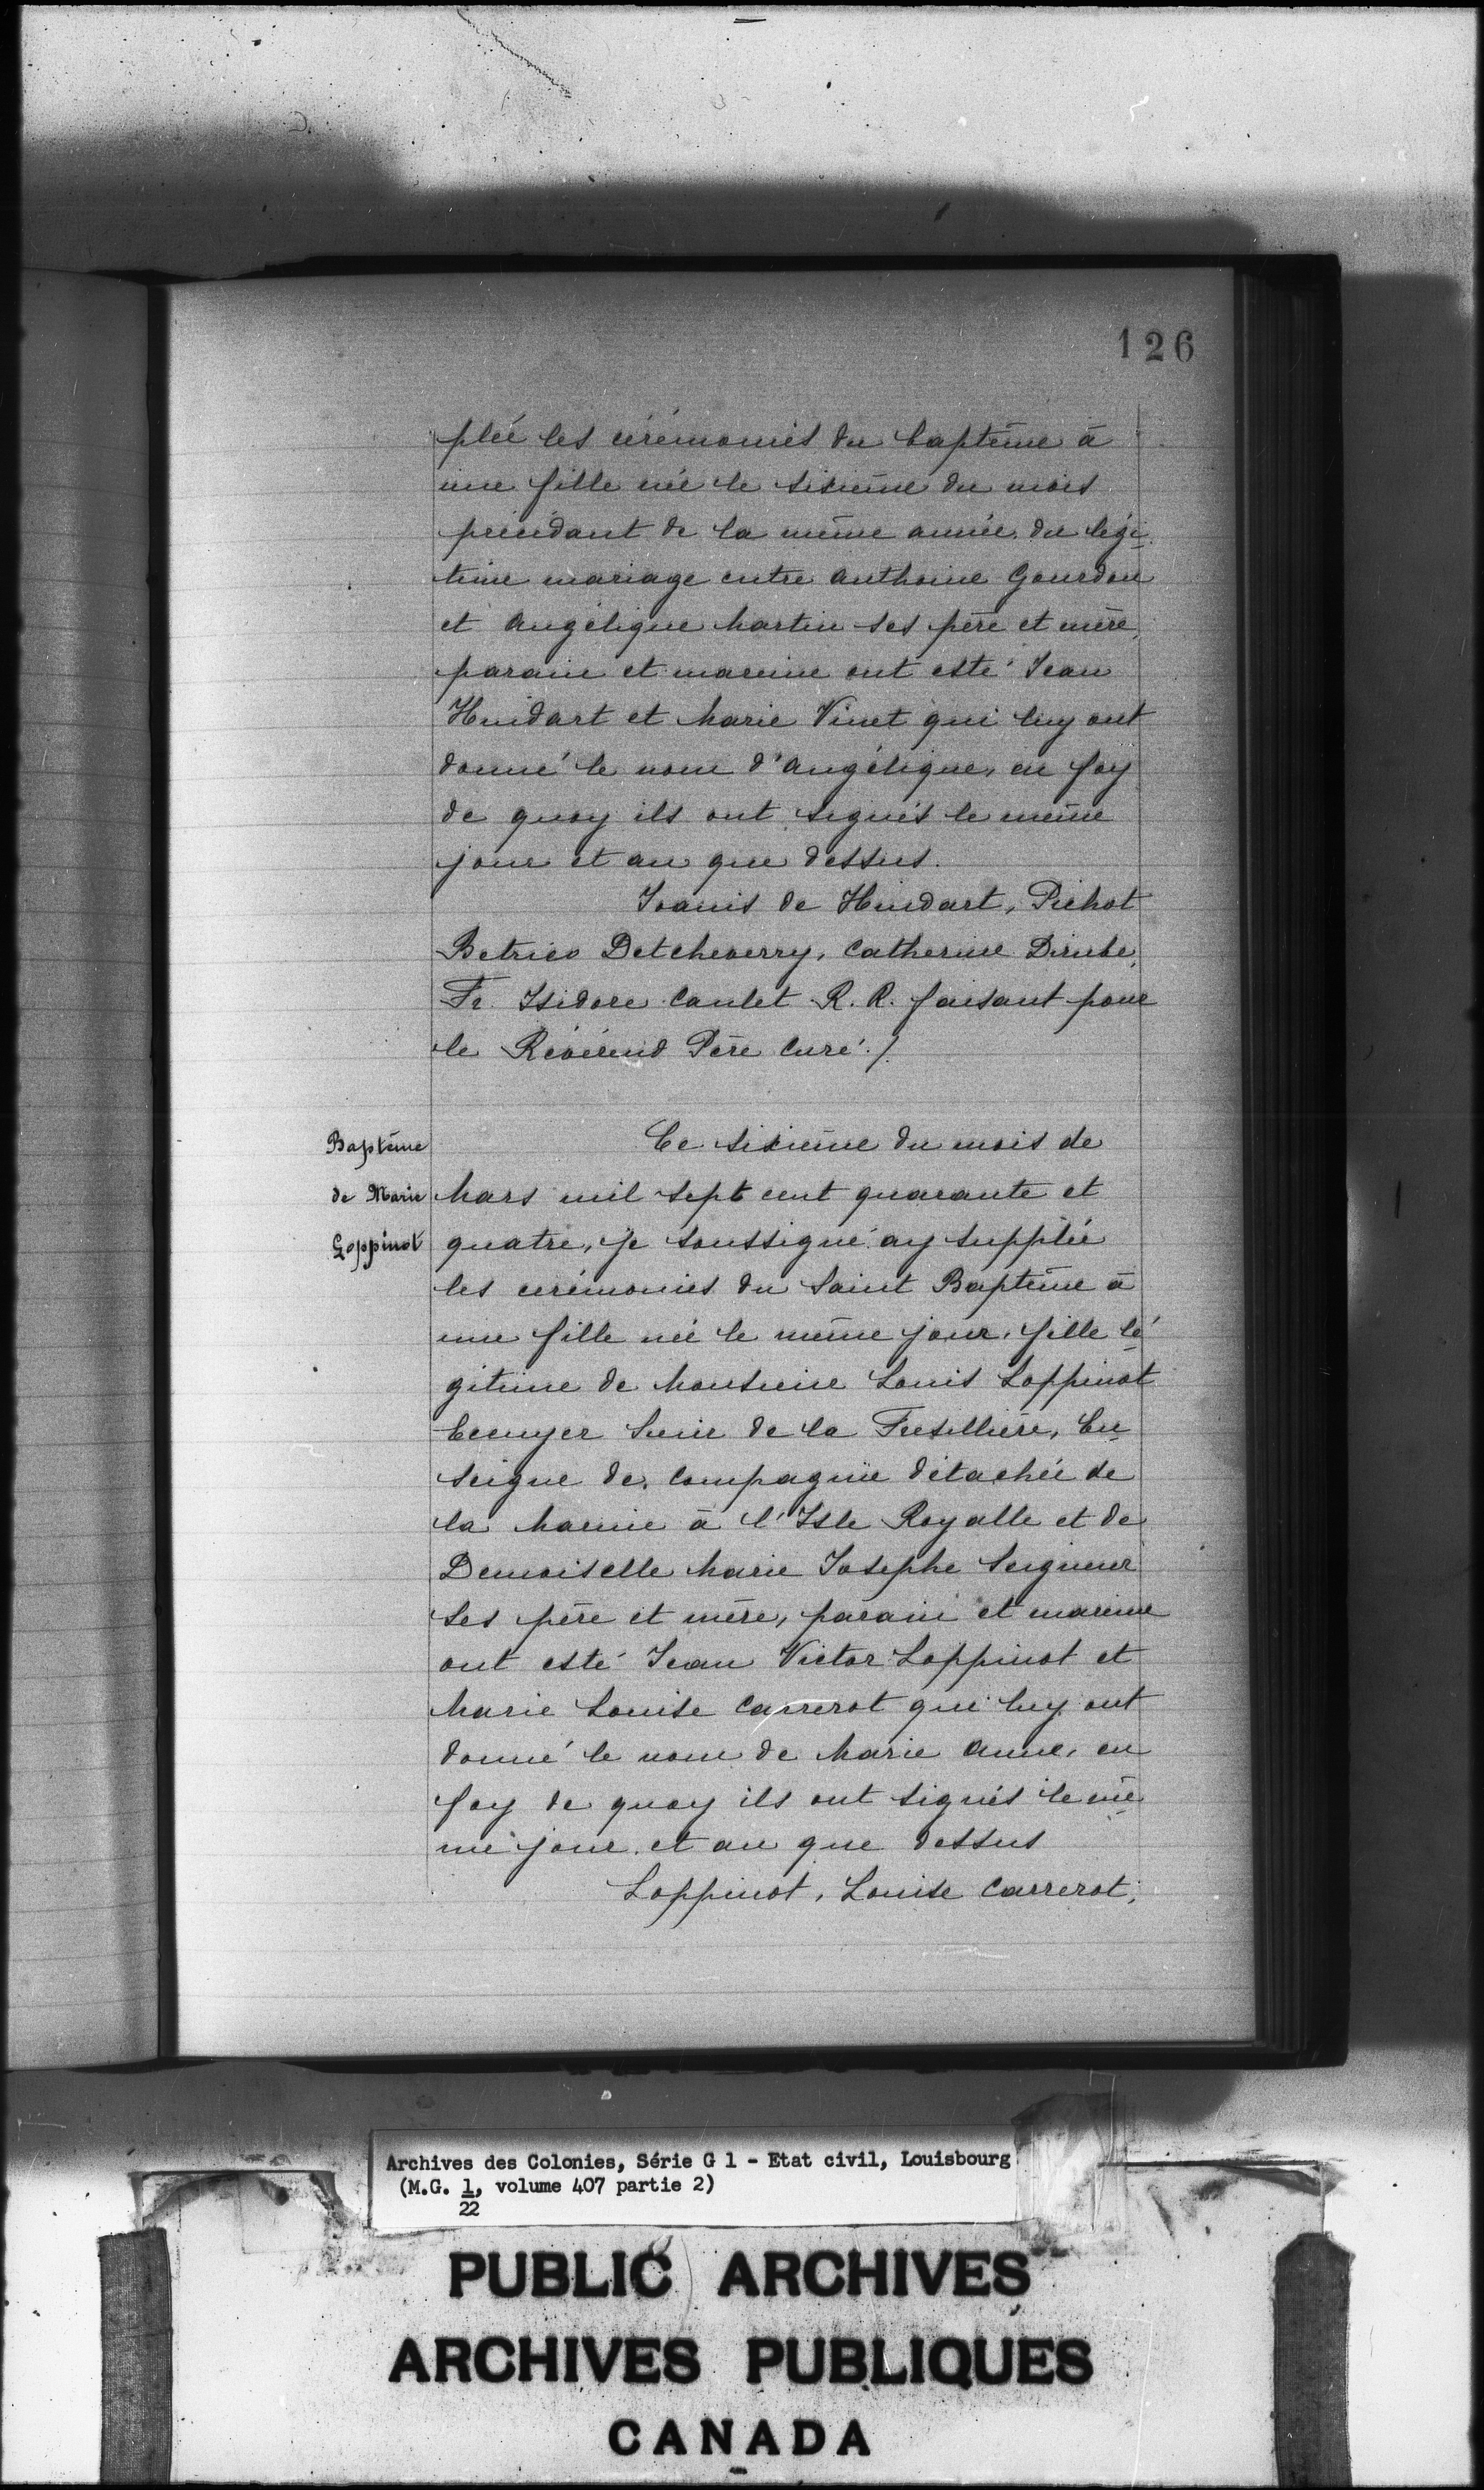 126
pléé les cérémonies du baptême à
une fille née le sixième du mois
précédant de la même année du légi-
time mariage entre Anthoine Gourdon
et Angélique Martin ses père et mère,
parain et mareine ont esté Jean
Huidart et Marie Vinet qui luy ont
donné le nom d'Angélique, en foy
de quoy ils ont signés le même
jour et an que dessus.
Joanis de Huidart, Pichot
Betrico Detcheverry, Catherine Dirube,
Fr. Isidore Caulet R. R. faisant pour
le Révérend Père Curé./.
Baptême
de Marie
Goppinot
Ce sixième du mois de
Mars mil sept cent quarante et
quatre, je soussigné ay supplée
les cérémonies du Saint Baptême à
une fille née le même jour, fille lé-
gitime de Monsieur Louis Loppinot
Ecuyer Sieur de la Fresillière, En-
seigne de compagnie détachée de
la Marine à l'Isle Royalle et de
Demoiselle Marie Josephe Seigneur
ses père et mère, parain et mareine
ont esté Jean Victor Loppinot et
Marie Louise Carrerot qui luy ont
donné le nom de Marie Anne, en
foy de quoy ils ont signés le mê-
me jour et an que dessus
Loppinot, Louise Carrerot,
Archives des Colonies, Série G 1 - Etat civil, Louisbourg
(M.G. 1, volume 407 partie 2)
22
PUBLIC ARCHIVES
ARCHIVES PUBLIQUES
CANADA